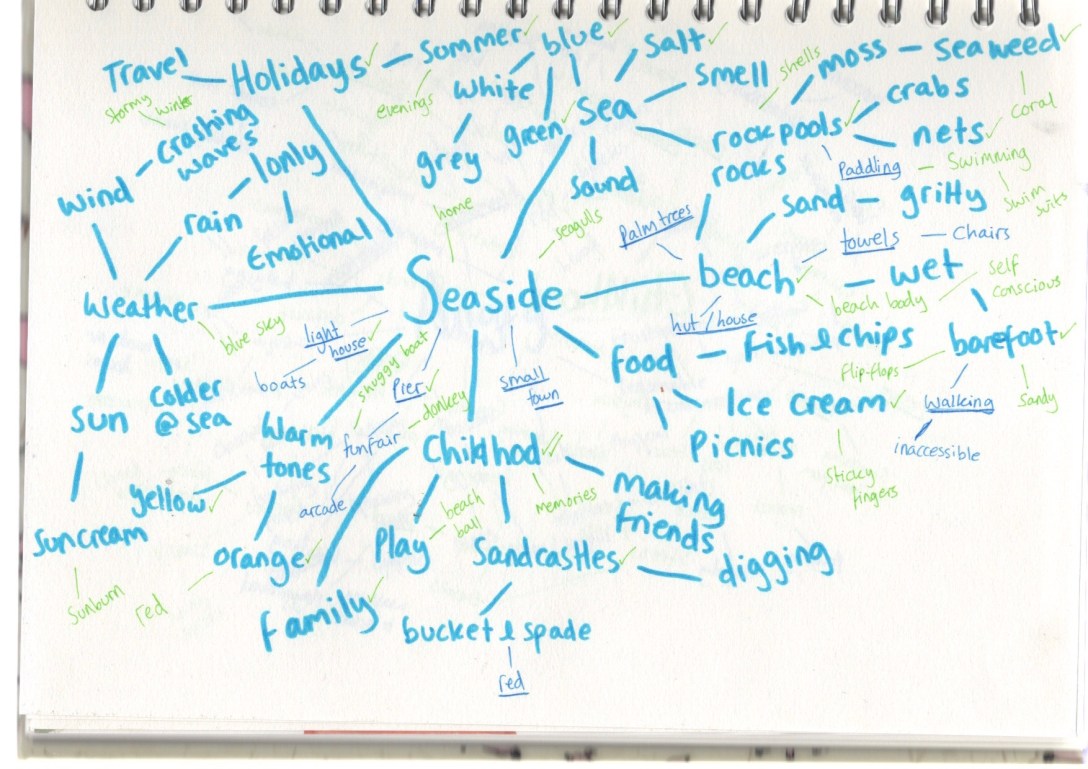 Travel
Holidays
Summer
blue
Salt
Smell
shells
moss
Seaweed
coral
crabs
nets
rockpools
rocks
Paddling
Swimming
Swim
suits
evenings
white
grey
green
Sea
Sound
seagulls
home
stormy
winter
crashing
waves
lonly
Emotional
wind
rain
Weather
blue sky
Seaside
Palm trees
sand
gritty
towels
Chairs
beach
wet
beach body
self
conscious
hut/house
barefoot
flip-flops
Walking
inaccessible
Sandy
light
house
boats
shuggy boat
Pier
small
town
food
fish & chips
Ice cream
Picnics
Sticky
fingers
Sun
Colder
@ sea
Warm
tones
donkey
funfair
arcade
Childhod
memories
making
friends
Suncream
Sunburn
yellow
orange
red
family
Play
beach
ball
Sandcastles
digging
bucket & spade
red